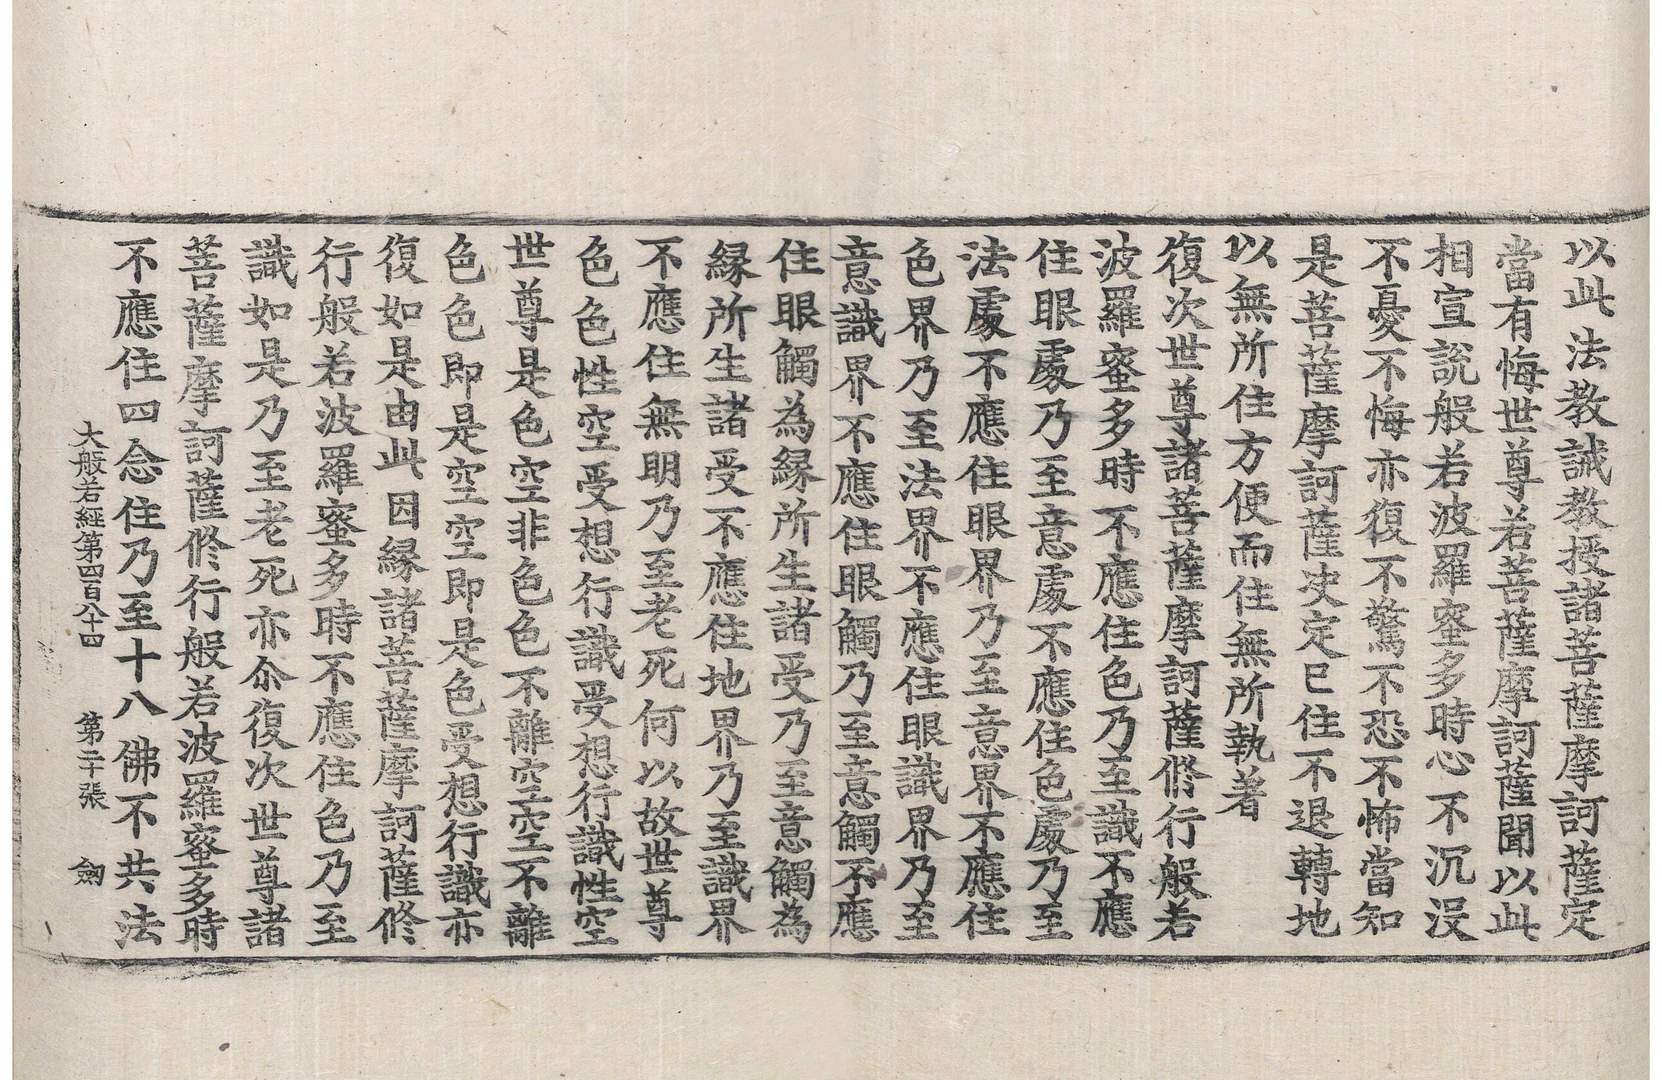 以此法教誡教授諸菩薩摩訶薩定
當有悔世尊若菩薩摩訶薩聞以此
相宣說般若波羅蜜多時心不沉没
不憂不悔亦復不驚不恐不怖當知
是菩薩摩訶薩决定已住不退轉地
以無所住方便而住無所執著
復次世尊諸菩薩摩訶薩修行般若
波羅蜜多時不應住色乃至識不應
住眼處乃至意處不應住色處乃至
法處不應住眼界乃至意界不應住
色界乃至法界不應住眼識界乃至
意識界不應住眼觸乃至意觸不應
住眼觸為緣所生諸受乃至意觸為
緣所生諸受不應住地界乃至識界
不應住無明乃至老死何以故世尊
色色性空受想行識受想行識性空
世尊是色空非色色不離空空不離
色色即是空空即是色受想行識亦
復如是由此因緣諸菩薩摩訶薩修
行般若波羅蜜多時不應住色乃至
識如是乃至老死亦尒復次世尊諸
菩薩摩訶薩修行般若波羅蜜多時
不應住四念住乃至十八佛不共法
大般若經第四百八十四 第二十張 劒